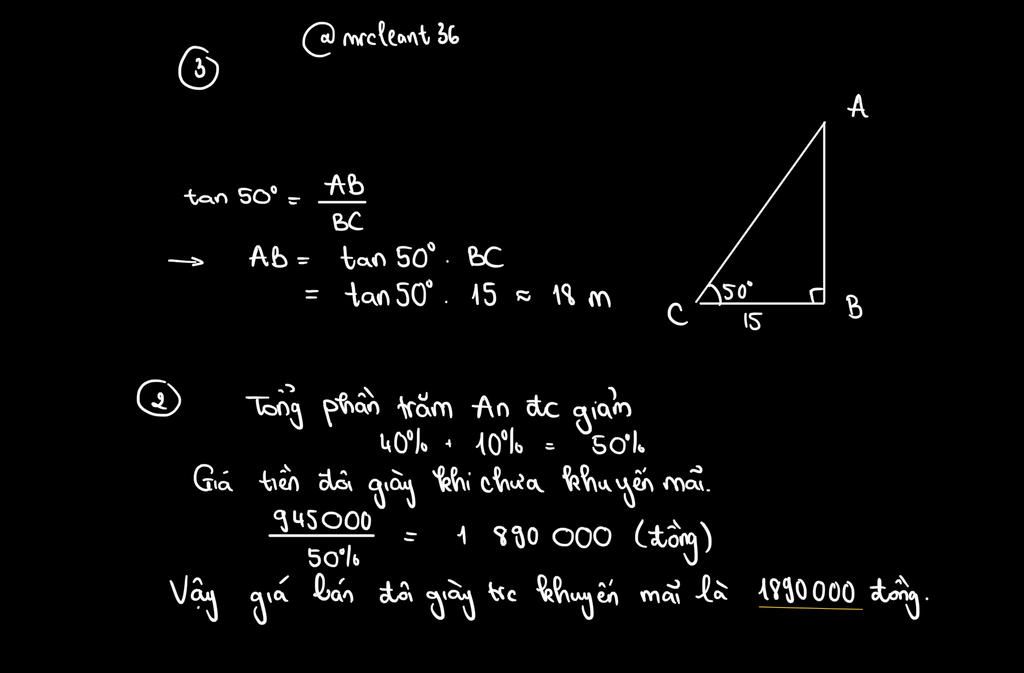 @mrcleant36
3
tan 50° = AB/BC
→ AB = tan 50° . BC
= tan 50° . 15 ≈ 18 m
A
50°
C
B
15
2
Tổng phần trăm An đc giảm
40% + 10% = 50%
Giá tiền đôi giày khi chưa khuyến mãi.
945000/50% = 1 890 000 (đồng)
Vậy giá bán đôi giày trc khuyến mãi là 1890000 đồng.